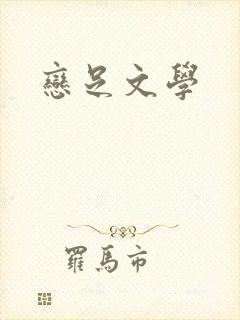 戀足文學
羅馬市